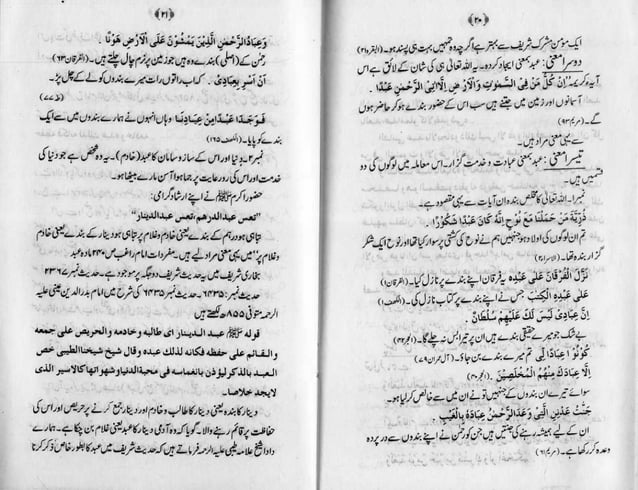 ﴿۲۰﴾
ایک مؤمن مشرک شریف سے بہتر ہے اگرچہ وہ تمہیں بہت ہی پسند ہو۔ (البقرہ ۲۱)
دوسرا معنی: عبد بمعنی ایجاد کردہ۔ یہ اللہ تعالیٰ ہی کی شان کے لائق ہے اس
آیہ کریمہ: اِنْ كُلُّ مَنْ فِي السَّمٰوٰتِ وَالْاَرْضِ اِلَّا اٰتِي الرَّحْمٰنِ عَبْدًا
آسمانوں اور زمین میں جتنے ہیں سب اس کے حضور بندے ہو کر حاضر ہوں
گے۔ (مریم ۹۳)
سے یہی معنی مراد ہیں۔
تیسرا معنی: عبد بمعنی عبادت و خدمت گزار۔ اس معاملہ میں لوگوں کی دو
قسمیں ہیں۔
نمبر۱۔ اللہ تعالیٰ کا مخلص بندہ ان آیات سے یہی مقصود ہے۔
ذُرِّيَّةَ مَنْ حَمَلْنَا مَعَ نُوْحٍ اِنَّهٗ كَانَ عَبْدًا شَكُوْرًا۔
تم ان لوگوں کی اولاد ہو جنہیں ہم نے نوح کی کشتی پر سوار کیا تھا اور نوح ایک شکر
گزار بندہ تھا۔ (الاسراء)
نَزَّلَ الْفُرْقَانَ عَلٰى عَبْدِهٖ یہ فرقان اپنے بندے پر نازل کیا۔ (الفرقان ۱)
عَلٰى عَبْدِهِ الْكِتٰبَ جس نے اپنے بندے پر کتاب نازل کی۔ (الکھف ۱)
اِنَّ عِبَادِيْ لَيْسَ لَكَ عَلَيْهِمْ سُلْطَانٌ
بے شک جو میرے حقیقی بندے ہیں ان پر تیرا بس نہ چلے گا۔
كُوْنُوْا عِبَادًا لِّيْ تم میرے بندے بن جاؤ۔ (آل عمران ۷۹)
اِلَّا عِبَادَكَ مِنْهُمُ الْمُخْلَصِيْنَ۔
سوائے تیرے ان بندوں کے جنہیں تو نے ان میں سے خالص کر لیا ہو۔
جَنّٰتِ عَدْنِ الَّتِيْ وَعَدَ الرَّحْمٰنُ عِبَادَهٗ بِالْغَيْبِ
ان کے لیے ہمیشہ رہنے کی جنتیں ہیں جن کا رحمن نے اپنے بندوں سے در پردہ
وعدہ کر رکھا ہے۔ (مریم ۶۱)
﴿۲۱﴾
وَعِبَادُ الرَّحْمٰنِ الَّذِيْنَ يَمْشُوْنَ عَلَى الْاَرْضِ هَوْنًا۔
رحمن کے (اصلی) بندے وہ ہیں جو زمین پر نرم چال چلتے ہیں۔ (الفرقان ۶۳)
اَنْ اَسْرِ بِعِبَادِيْ۔ کہ اب راتوں رات میرے بندوں کو لے کے چل پڑ۔
(طٰہٰ ۷۷)
فَوَجَدَا عَبْدًا مِنْ عِبَادِنَا وہاں انہوں نے ہمارے بندوں میں سے ایک
بندے کو پایا۔ (الکھف ۶۵)
نمبر۲۔ دنیا اور اس کے ساز و سامان کا عبد (خادم)۔ یہ وہ شخص ہے جو دنیا کی
خدمت اور اس کی رعایت پر جما ہوا آسن مارے بیٹھا ہو۔
حضور اکرم ﷺ نے اپنے ارشاد گرامی:
تعس عبدالدرھم، تعس عبدالدینار
تباہی ہو درہم کے بندے یعنی خادم و غلام پر تباہی ہو دینار کے بندے یعنی خادم و غلام
پر" میں یہی معنی مراد لیے ہیں۔ مفردات امام راغب ص ۲۴۰ مادہ عبد
بخاری شریف میں یہ حدیث شریف دو جگہ پر موجود ہے۔ حدیث نمبر ۲۳۶۷
حدیث نمبر ۶۴۳۵۔ حدیث نمبر ۶۴۳۵ کی شرح میں امام بدر الدین عینی علیہ
الرحمہ متوفی ۸۵۵ھ لکھتے ہیں
قوله ﷺ عبد الدينار ای طالبه وخادمه والحريص على جمعه
والقائم على حفظه فكانه لذلك عبده وقال شيخ شيخنا الطيبي خص
العبد بالذكر ليؤذن بانغماسه فی محبة الدنيا وشهواتها كالاسير الذی
لايجد خلاصا۔
دینار کا بندہ یعنی دینار کا طالب و خادم اور دینار جمع کرنے پر حریص اور اس کی
حفاظت پر قائم رہنے والا۔ گویا کہ وہ آدمی دینار کا عبد یعنی غلام بن چکا ہے۔ ہمارے
دادا شیخ علامہ طیبی علیہ الرحمہ فرماتے ہیں کہ حدیث شریف میں عبد کا بطور خاص ذکر کرنا